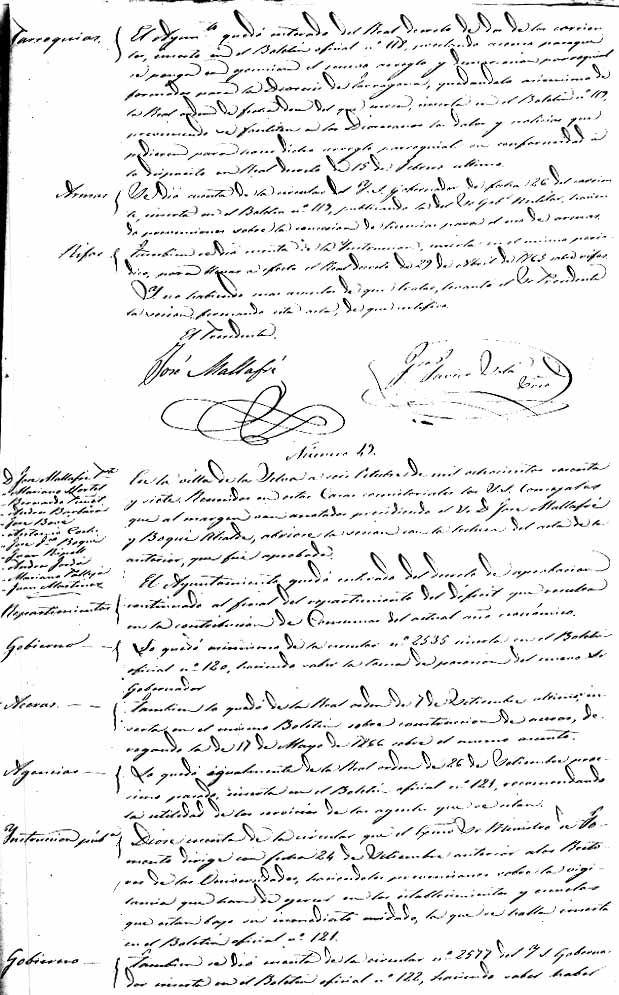 Parroquias. { El Ayunt.to quedó enterado del Real decreto de dos de los corrien-
tes, inserto en el Boletin oficial n.º 118, para que
se ponga en egecucion el nuevo arreglo y demarcacion parroquial
formados para la Diocesis de Tarragona, quedandolo asimismo de
la Real orden de fecha dos del que cursa, inserta en el Boletin n.º 119,
previniendo se faciliten a los Diocesanos los datos y noticias que
pidieren para dicho arreglo parroquial en conformidad á
lo dispuesto en Real decreto de 15 de Febrero ultimo.
Armas { Se dió cuenta de la circular del Y. S. Gobernador de fecha 26 del corrien-
te, inserta en el Boletin n.º 119, publicando la del Sr Gob.r Militar, hacien-
do prevenciones sobre la concesion de licencias para el uso de armas.
Rifas { Tambien se dió cuenta de la Instruccion, inserta en el mismo perio-
dico, para llevar a efecto el Real decreto de 29 de Abril de sobre rifas
Y no habiendo mas asuntos de que tratar, levantó el Sr Presidente
la sesion, firmando esta acta, de que certifico.
El Presidente.
José Mallafré
Javier Srio
Número 49.
D. José Mallafré
Mariano
Bernardo
Isidro Barberá
José Boné
Antonio
José Boqué
Juan Ripoll
Jordá
Mariano
Juan Martinez
En la villa de la Selva a seis Octubre de mil ochocientos sesenta
y siete. Reunidos en estas Casas consistoriales los S.S. Concejales
que al margen van anotados presidiendo el Sr D. José Mallafré
y Boqué Alcalde, abriose la sesion con la lectura del acta de la
anterior, que fué aprobada.
Repartimientos { El Ayuntamiento quedó enterado del decreto de aprobacion
continuado al final del repartimiento del déficit que resulta
en la contribucion de Consumos del actual año económico.
Gobierno { Lo quedó asimismo de la circular n.º 2535 inserta en el Boletin
oficial n.º 120, haciendo saber la toma de posesion del nuevo Sr
Gobernador
Aceras. { Tambien lo quedó de la Real orden de 7 de Setiembre ultimo, in-
serta en el mismo Boletin sobre construccion de aceras, de-
rogando la de 17 de Mayo de 1866 sobre el mismo asunto.
Agencias { Lo quedó igualmente de la Real orden de 26 de Setiembre proc-
simo pasado, inserta en el Boletin oficial n.º 121, recomendando
la utilidad de los servicios de los agentes
Instruccion púb.a { Diose cuenta de la circular que el Ecmo Sr Ministro de Fo-
mento dirige con fecha 24 de Setiembre anterior a los Recto-
res de las Universidades, haciendoles prevenciones sobre la vigi-
lancia que han de ejercer en los establecimientos y escuelas
que estan bajo su inmediato cuidado, la que se halla inserta
en el Boletin oficial n.º 121.
Gobierno { Tambien se dió cuenta de la circular n.º 2577 del Y. S. Goberna-
dor inserta en el Boletin oficial n.º 122, haciendo saber haber